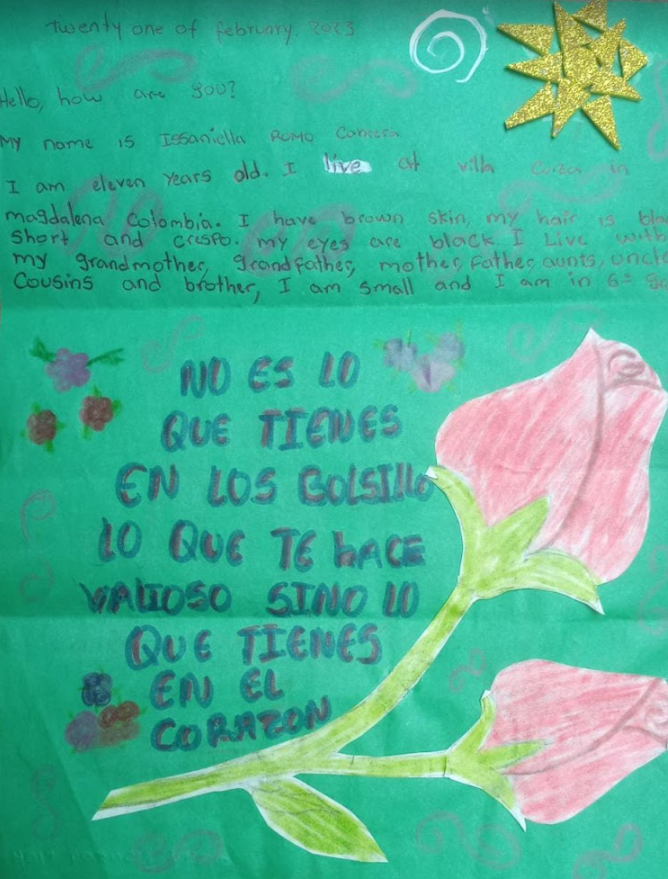 Twenty one of february, 2023
Hello, how are you?
My name is Issaniella Romo Cabrera
I am eleven years old. I live at villa in
magdalena Colombia. I have brown skin, my hair is
short and crespo. my eyes are black I Live with
my grandmother, grandfather, mother, father, aunts,
Cousins and brother, I am small and I am in 6=
NO ES LO
QUE TIENES
EN LOS BOLSILLO
LO QUE TE HACE
VALIOSO SINO LO
QUE TIENES
EN EL
CORAZON